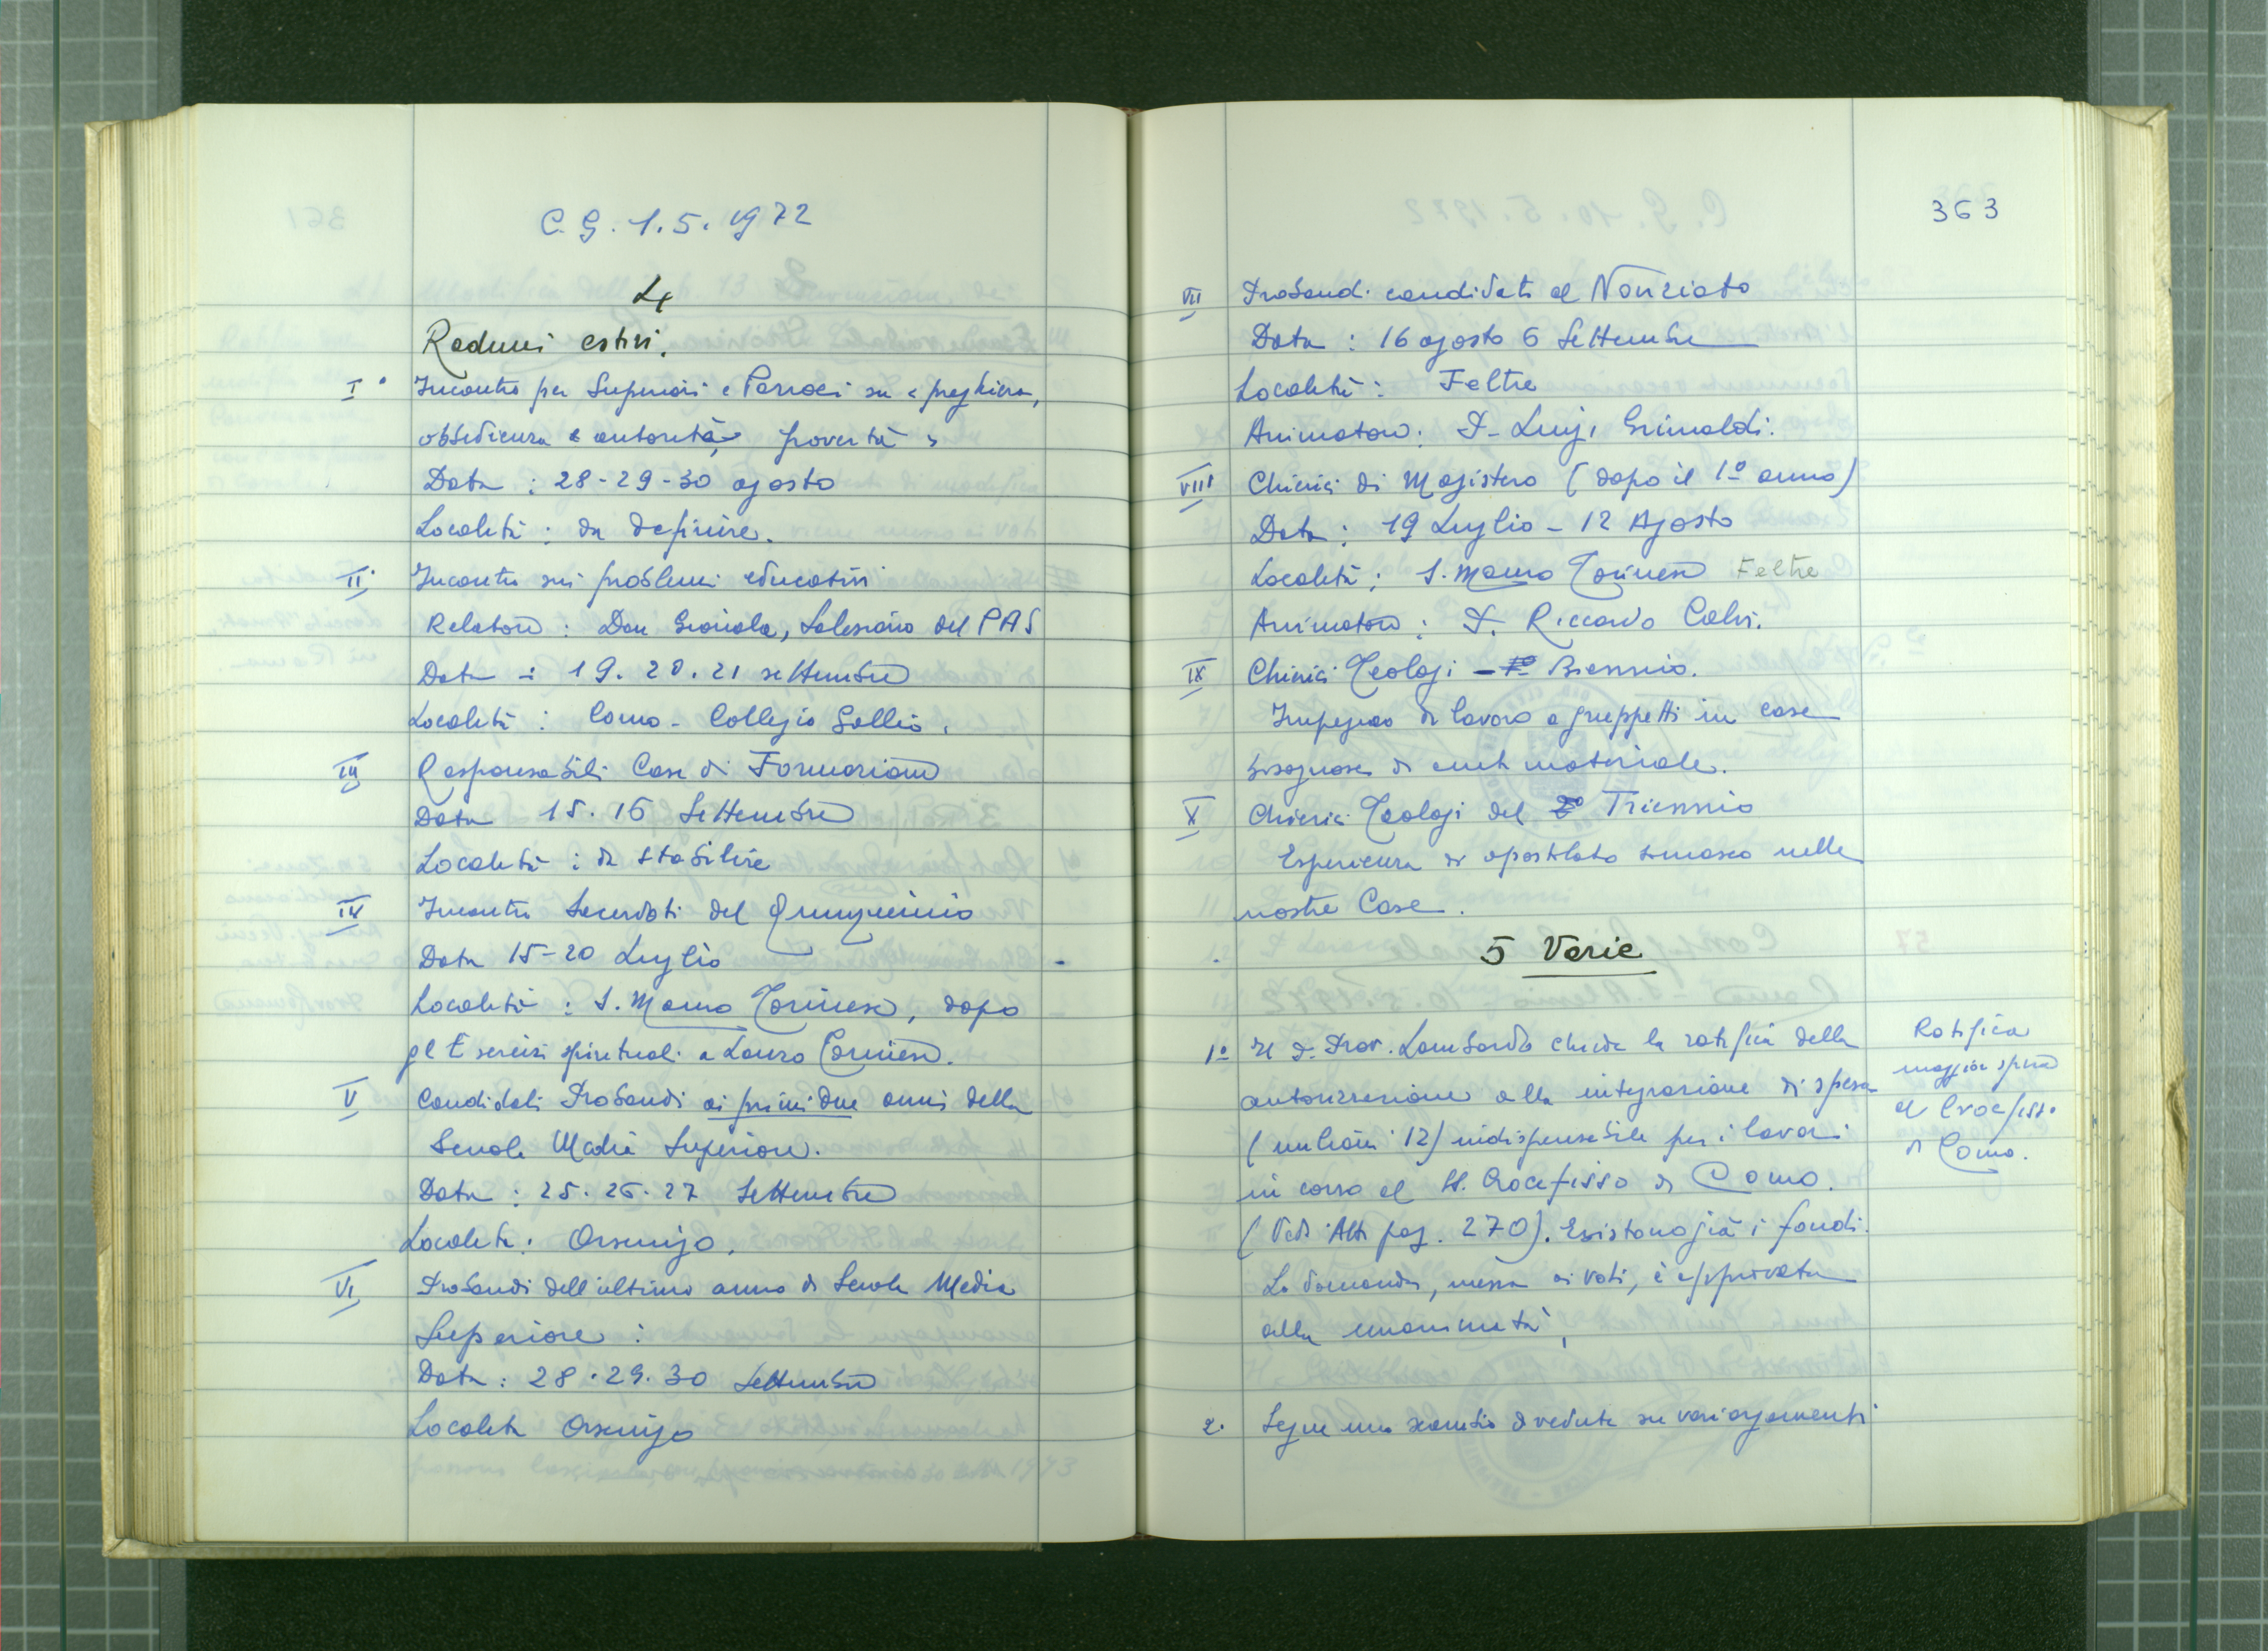 C. G. 1.5.1972
4
Raduni estivi.
I° Incontro per Superiori e Parroci su « preghiera,
obbedienza e autorità, povertà »
Data : 28-29-30 agosto
Località : da definire.
II° Incontro sui problemi educativi
Relatore : Don Gianola, Salesiano del PAS
Data : 19. 20. 21 settembre
Località : Como - Collegio Gallio.
III Responsabili Case di Formazione
Data 15. 16 Settembre
Località : da stabilire
IV Incontro Sacerdoti del Quinquennio
Data 15-20 Luglio
Località : S. Mauro Torinese, dopo
gl Esercizi spirituali a Lanzo Torinese.
V Candidati Probandi ai primi due anni della
Scuola Media Superiore.
Data : 25. 26. 27 Settembre
Località : Orsenigo.
VI Probandi dell'ultimo anno di Scuola Media
Superiore :
Data : 28. 29. 30 Settembre
Località Orsenigo
363
VII Probandi candidati al Noviziato
Data : 16 agosto 6 Settembre
Località : Feltre
Animatore : P. Luigi Grimaldi.
VIII Chierici di Magistero (dopo il 1° anno)
Data : 19 Luglio - 12 Agosto
Località : S. Mauro Torinese Feltre
Animatore : P. Riccardo Calvi.
IX Chierici Teologi - 1° Biennio.
Impegno di lavoro a gruppetti in case
bisognose di aiuto materiale.
X Chierici Teologi del 2° Triennio
Esperienza di apostolato somasco nelle
nostre Case.
5 Varie
1° Il P. Prov. Lombardo chiede la ratifica della
autorizzazione alla integrazione di spesa
(milioni 12) indispensabile per i lavori
in corso al SS. Crocefisso di Como.
(Vedi Atti pag. 270). Esistono già i fondi.
La domanda, messa ai voti, è approvata
alla unanimità.
Ratifica
maggior spesa
al Crocefisso
di Como.
2. Segue uno scambio di vedute su vari argomenti